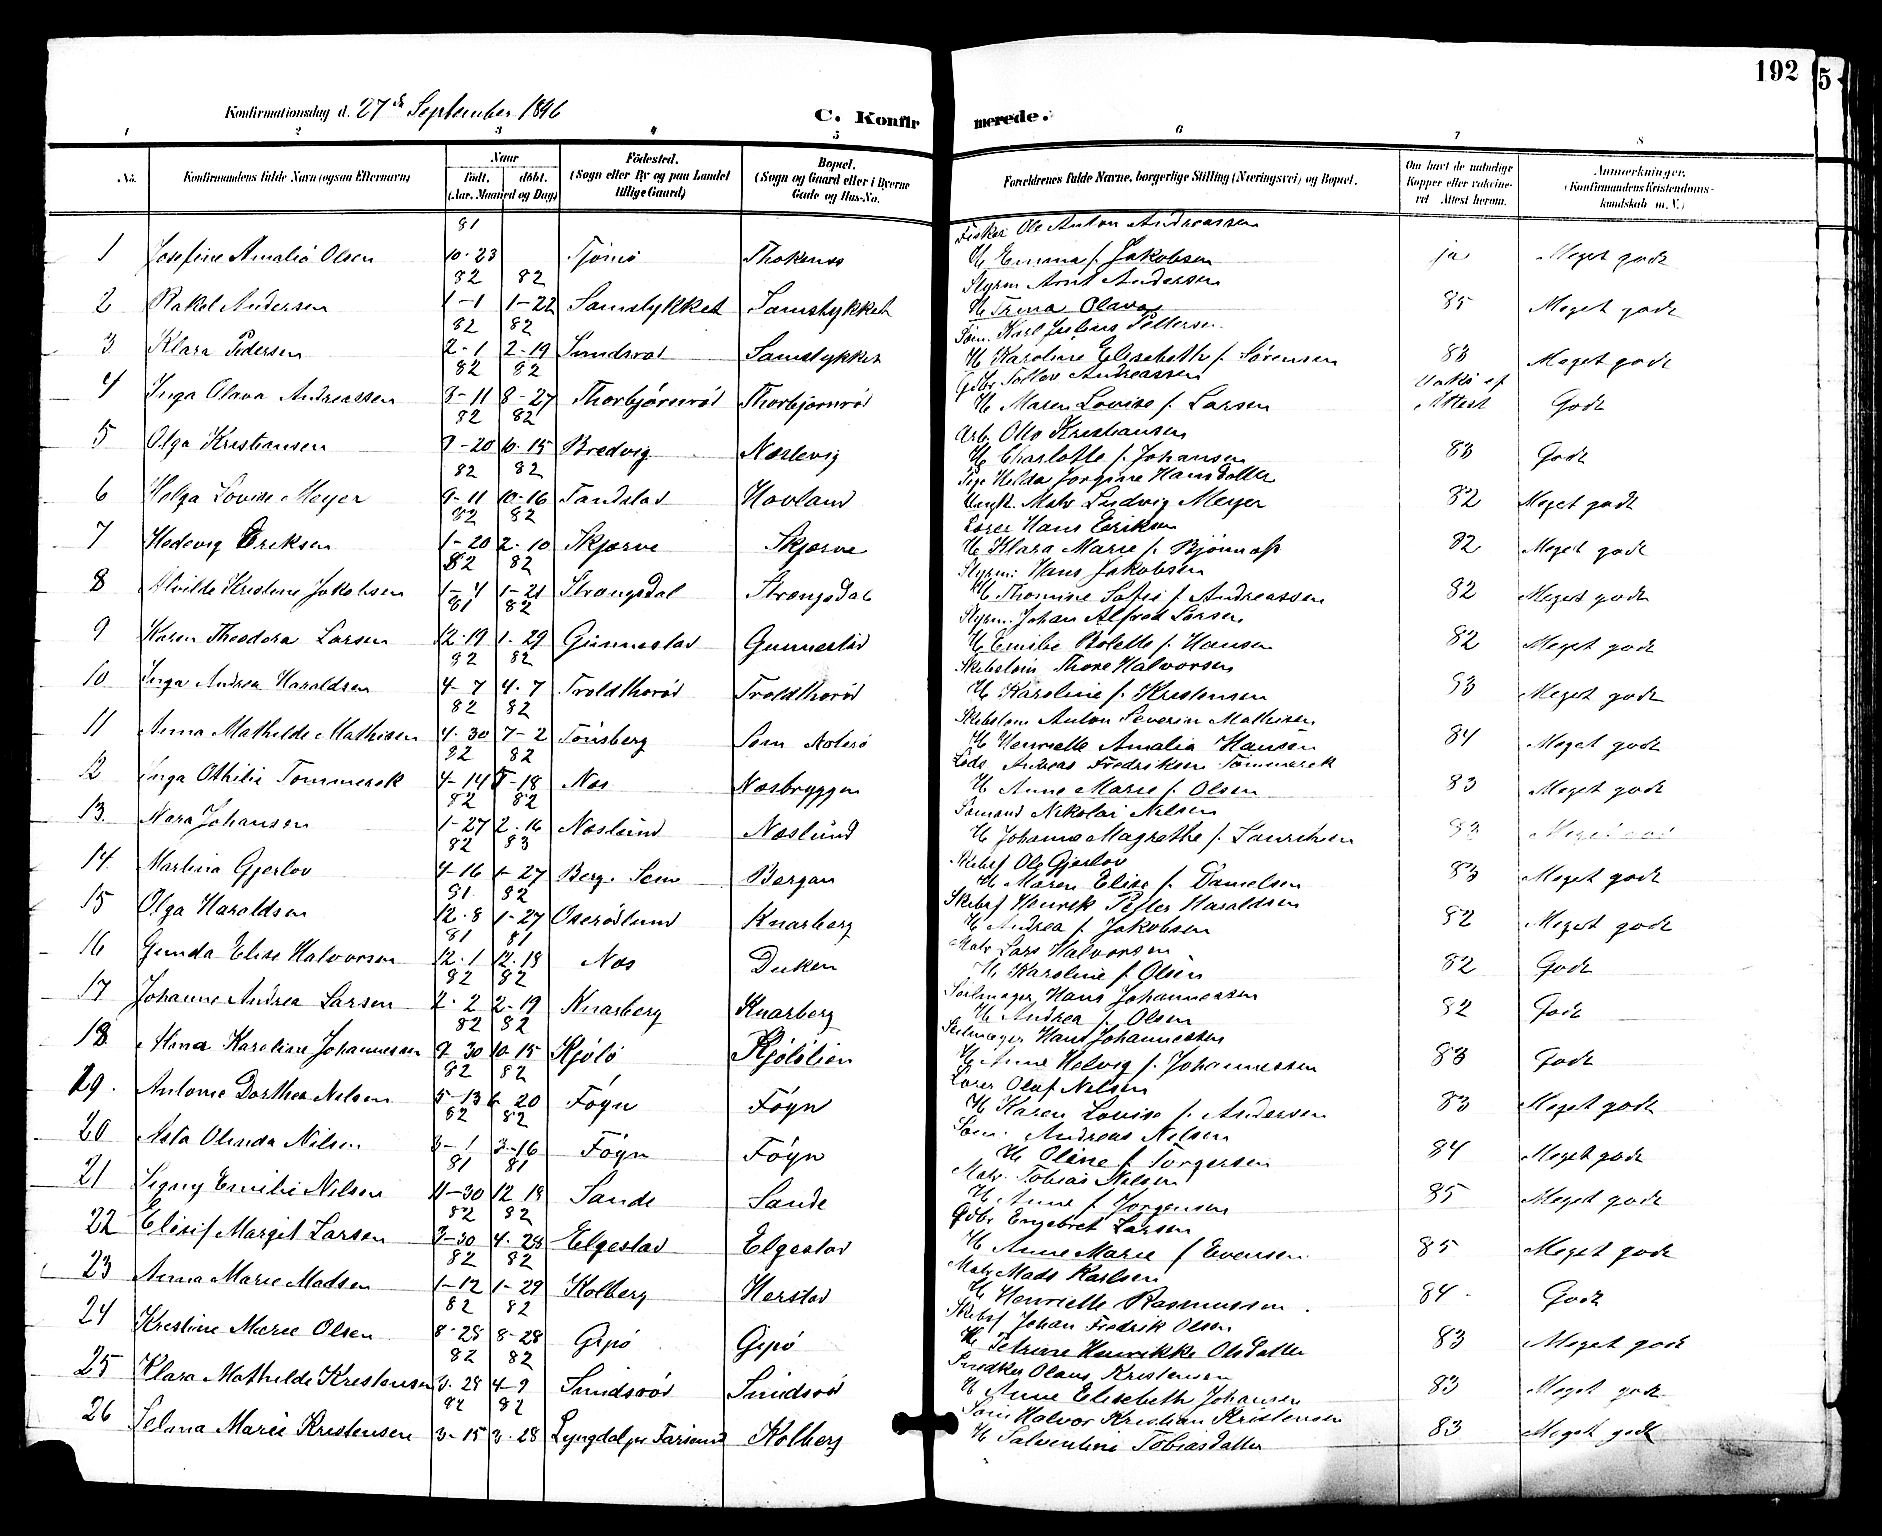 192
5
Konfirmationsdag d. 27de September 1896
C. Konfirmerede.
1 2 3 4 5 6 7 8
No.
Konfirmandens fulde Navn (ogsaa Efternavn)
Naar
Født. døbt.
(Aar, Maaned og Dag)
Fødested.
(Sogn eller By og paa Landet tillige Gaard)
Bopæl.
(Sogn og Gaard eller i Byerne Gade og Hus-No.
Forældrenes fulde Navne, borgerlige Stilling (Næringsvei) og Bopæl.
Om havt de naturlige Kopper eller vaccineret Attest herom.
Anmærkninger.
(Konfirmandens Kristendomskundskab m. V.)
1 Josefine Amalie Olsen 81 10-23 Tjømø Thokenes Fisker Ole Anton Andreassen H Emma f. Jakobsen ja Meget godt
2 Rakel Andersen 82 1-1 82 1-22 Samstykket Samstykket Styrm Arnt Andersen H Trina Olava 85 Meget godt
3 Klara Pedersen 82 2-1 82 2-19 Sundsrød Samstykket Søm. Karl Julius Pettersen H Karoline Elisabeth f. Sørensen 83 Meget godt
4 Inga Olava Andreassen 82 8-11 82 8-27 Thorbjørnrød Thorbjørnrød Gdbr Tollev Andreassen H Maren Lovise f. Larsen Attest Godt
5 Olga Kristiansen 82 9-20 82 10-15 Bredvig Næstevig Arb. Otto Kristiansen H Charlotte f. Johansen 83 Godt
6 Helga Lovise Meyer 82 9-11 82 10-16 Tandstad Hovland Pige Hilda Jørgine Hansdatter Ungk. Matr Ludvig Meyer 82 Meget godt
7 Hedevig Eriksen 82 1-20 82 2-10 Skjærve Skjærve Lærer Hans Eriksen H Klara Marie f. Bjønnæss 82 Meget godt
8 Alvilde Kristine Jakobsen 82 1-4 82 1-21 Strængsdal Strængsdal Styrm: Hans Jakobsen H Thomine Sofie f Andreassen 82 Meget godt
9 Karen Theodora Larsen 81 12-19 82 1-29 Gunnestad Gunnestad Styrm. Johan Alfred Larsen H Emilie Bolette f. Hansen 82 Meget godt
10 Inga Andrea Haraldsen 82 4-7 82 4-7 Troldthorød Troldthorød Skibstøm Thore Halvorsen H Karoline f. Kristensen 93 Meget godt
11 Anna Mathilde Mathisen 82 4-30 82 7-2 Tønsberg Sem Noterø Skibstøm Anton Severin Mathisen H Henriette Amalia Hansen 84 Meget godt
12 Inga Othilie Tommerek 82 4-14 82 5-18 Næs Næsbryggen Lods Andreas Fredriksen Tømmerek H Anne Marie f. Olsen 83 Meget godt
13. Nora Johansen 82 1-27 82 2-16 Næslund Næslund Sømand Nikolai Nilsen H Johanne Magrethe f. Lauritsen 83 Meget godt
14. Martina Gjerløv 82 4-16 83 1-27 Berg. Sem Bergan Skibsf Ole Gjerløv H Maren Elise f. Danielsen 83 Meget godt
15 Olga Haraldsen 81 12-8 82 1-27 Oserødlund Knarberg Skibsf Henrik Peder Haraldsen H Andrea f. Jakobsen 82 Meget godt
16 Gunda Elise Halvorsen 81 12-1 81 12-18 Næs Duken Matr Lars Halvorsen H Karoline f. Olsen 82 Godt
17 Johanne Andrea Larsen 82 2-2 82 2-19 Knarberg Knarberg Seilmager Hans Johannessen H Andrea f. Olsen 82 Godt
18 Anna Karoline Johannesen 82 9-30 82 10-15 Kjøle Kjølølien Seilmager Hans Johannessen H Anne Helvig f. Johannessen 83 Godt
19. Antonie Dorthea Nilsen 82 5-13 82 6-20 Føyn Føyn Lærer Oluf Nilsen H Karen Lovise f. Andersen 83 Meget godt
20 Asta Olinda Nilsen 82 3-1 82 3-16 Føyn Føyn Søm. Andreas Nilsen H Oline f Torgersen 84 Meget godt
21 Signy Emilie Nilsen 81 11-30 81 12 18 Sande Sande Matr. Tobias Nilsen H Anne f. Jørgensen 85 Meget godt
22 Elisif Margit Larsen 82 3-30 82 4-28 Elgestad Elgestad Gdbr Engebret Larsen H Anne Marie f Evensen 85 Meget godt
23 Anna Marie Madsen 82 1-12 82 1-29 Kolberg Herstad Matr Mads Karlsen H Henriette Rasmussen. 84 Godt
24 Kristine Marie Olsen 82 8-28 82 8-28 Gipø Gipø Skibsf Johan Fredrik Olsen H Petrine Henrikke Olsdatter 83 Meget godt
25 Klara Mathilde Kristensen 82 3-28 82 4-9 Sundsrød Sundsrød Snedker Olaus Kristensen H Anne Elisabeth Johansen 83 Meget godt
26 Selma Marie Kristensen 82 3-15 82 3-28 Lyngdal pr Farsund Kolberg Søm Halvor Kristian Kristensen H Salventine Tobiasdatter 83 Meget godt